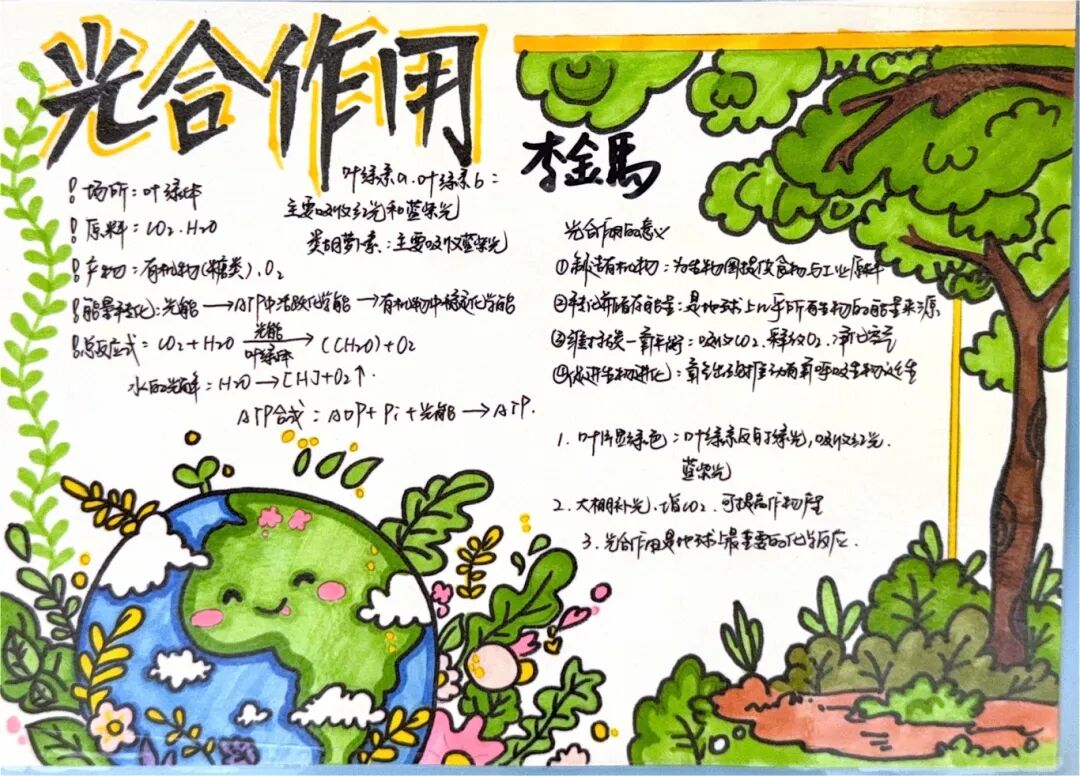 光合作用
李金馬
! 场所：叶绿体
! 原料：CO₂、H₂O
! 产物：有机物(糖类)、O₂
! 能量转化：光能 → ATP中活跃化学能 → 有机物中稳定化学能
! 总反应式：CO₂+H₂O 光能 叶绿体 → (CH₂O)+O₂
水的光解：H₂O → [H]+O₂↑
ATP合成：ADP+Pi+光能 → ATP.
叶绿素a、叶绿素b：
主要吸收红光和蓝紫光
类胡萝卜素：主要吸收蓝紫光
光合作用的意义
①制造有机物：为生物圈提供食物与工业原料
②转化并储存能量：是地球上几乎所有生物的能量来源
③维持碳—氧平衡：吸收CO₂、释放O₂、净化空气
④促进生物进化：氧气出现推动有氧呼吸生物
1. 叶片显绿色：叶绿素反射绿光，吸收红光、
蓝紫光
2. 大棚补光、增CO₂、可提高作物产量
3. 光合作用是地球上最重要的化学反应.